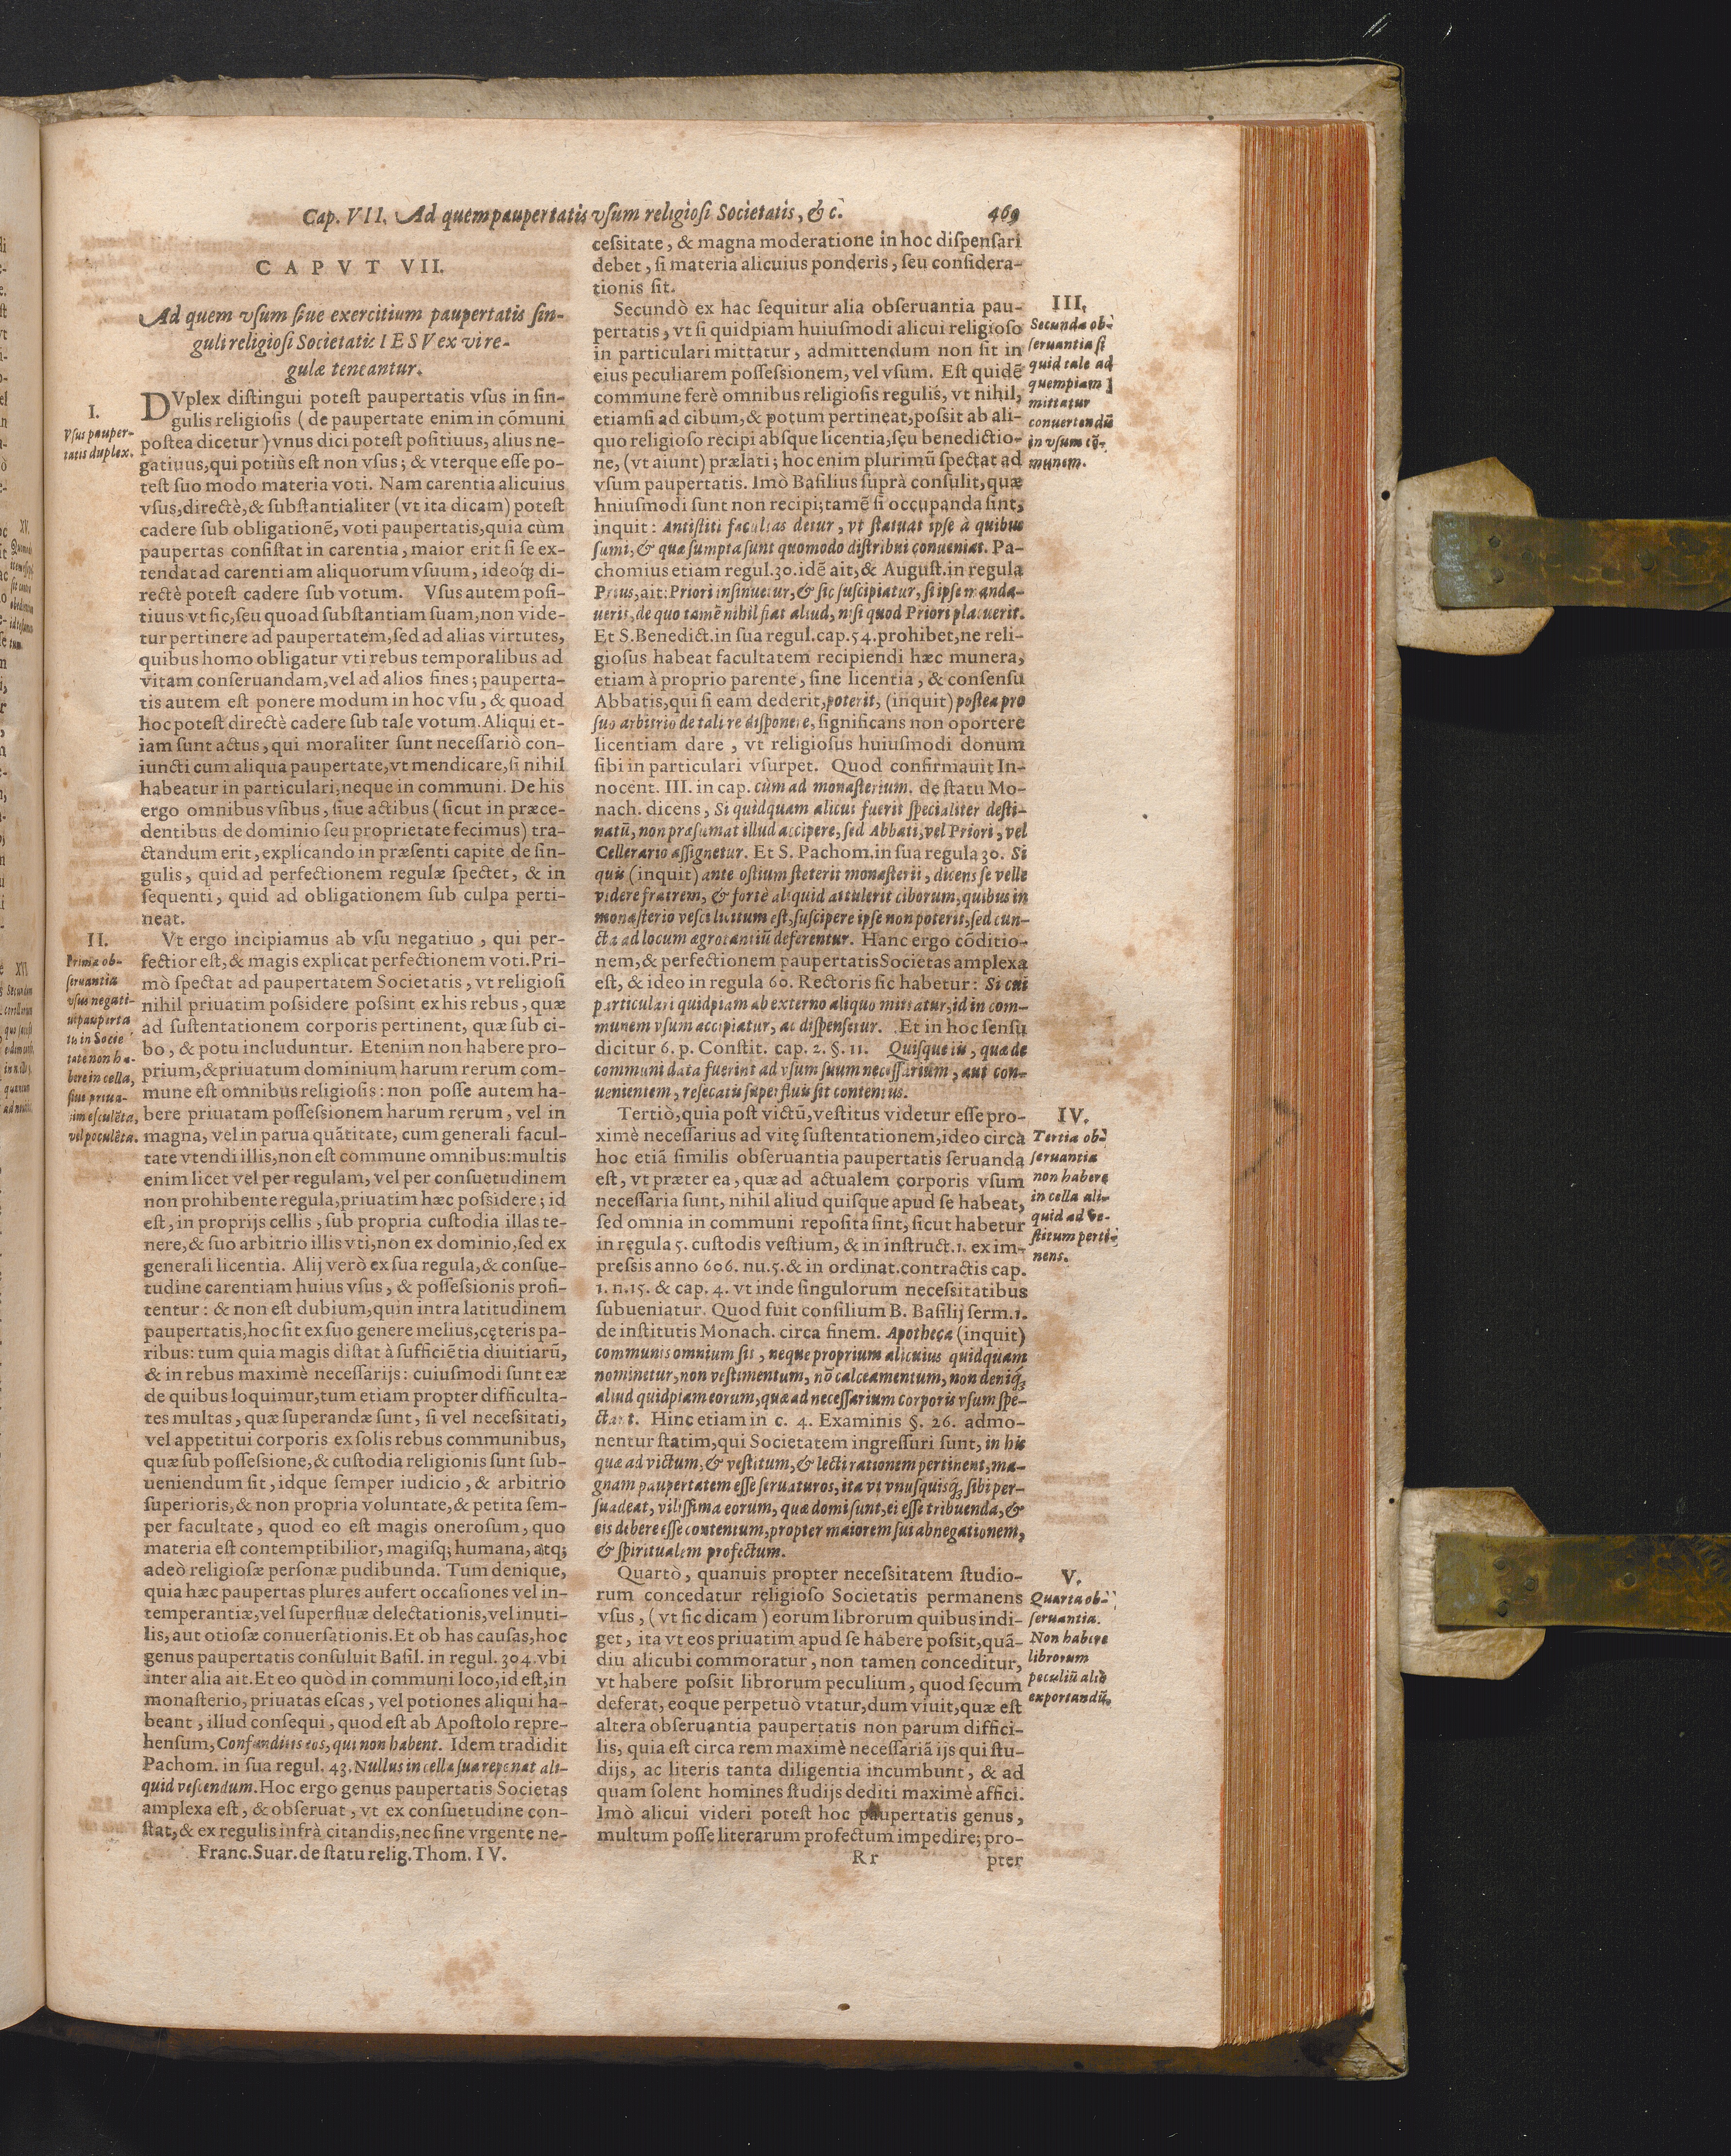 Cap. VII. Ad quem paupertatis vſum religioſi Societatis, & c. 469
CAPVT VII.
Ad quem vſum ſiue exercitium paupertatis ſin-
guli religioſi Societatis IESV ex vi re-
gulæ teneantur.
I.
Vſus pauper-
tatis duplex.
DVplex diſtingui poteſt paupertatis vſus in ſin-
gulis religioſis (de paupertate enim in cõmuni
poſtea dicetur) vnus dici poteſt poſitiuus, alius ne-
gatiuus, qui potiùs eſt non vſus; & vterque eſſe po-
teſt ſuo modo materia voti. Nam carentia alicuius
vſus, directè, & ſubſtantialiter (vt ita dicam) poteſt
cadere ſub obligationẽ, voti paupertatis, quia cùm
paupertas conſiſtat in carentia, maior erit ſi ſe ex-
tendat ad carentiam aliquorum vſuum, ideoq; di-
rectè poteſt cadere ſub votum. Vſus autem poſi-
tiuus vt ſic, ſeu quoad ſubſtantiam ſuam, non vide-
tur pertinere ad paupertatem, ſed ad alias virtutes,
quibus homo obligatur vti rebus temporalibus ad
vitam conſeruandam, vel ad alios fines; pauperta-
tis autem eſt ponere modum in hoc vſu, & quoad
hoc poteſt directè cadere ſub tale votum. Aliqui et-
iam ſunt actus, qui moraliter ſunt neceſſariò con-
iuncti cum aliqua paupertate, vt mendicare, ſi nihil
habeatur in particulari, neque in communi. De his
ergo omnibus vſibus, ſiue actibus (ſicut in præce-
dentibus de dominio ſeu proprietate fecimus) tra-
ctandum erit, explicando in præſenti capite de ſin-
gulis, quid ad perfectionem regulæ ſpectet, & in
ſequenti, quid ad obligationem ſub culpa perti-
neat.
II.
Prima ob-
ſeruantia
vſus negati-
ui pauperta
tis in Socie
tate non ha-
bere in cella,
ſiue priua-
tim eſculẽta,
vel poculẽta.
Vt ergo incipiamus ab vſu negatiuo, qui per-
fectior eſt, & magis explicat perfectionem voti. Pri-
mò ſpectat ad paupertatem Societatis, vt religioſi
nihil priuatim poſsidere poſsint ex his rebus, quæ
ad ſuſtentationem corporis pertinent, quæ ſub ci-
bo, & potu includuntur. Etenim non habere pro-
prium, & priuatum dominium harum rerum com-
mune eſt omnibus religioſis: non poſſe autem ha-
bere priuatam poſſeſsionem harum rerum, vel in
magna, vel in parua quãtitate, cum generali facul-
tate vtendi illis, non eſt commune omnibus: multis
enim licet vel per regulam, vel per conſuetudinem
non prohibente regula, priuatim hæc poſsidere; id
eſt, in proprijs cellis, ſub propria cuſtodia illas te-
nere, & ſuo arbitrio illis vti, non ex dominio, ſed ex
generali licentia. Alij verò ex ſua regula, & conſue-
tudine carentiam huius vſus, & poſſeſsionis profi-
tentur: & non eſt dubium, quin intra latitudinem
paupertatis, hoc ſit ex ſuo genere melius, cęteris pa-
ribus: tum quia magis diſtat à ſufficiẽtia diuitiarũ,
& in rebus maximè neceſſarijs: cuiuſmodi ſunt eæ
de quibus loquimur, tum etiam propter difficulta-
tes multas, quæ ſuperandæ ſunt, ſi vel neceſsitati,
vel appetitui corporis ex ſolis rebus communibus,
quæ ſub poſſeſsione, & cuſtodia religionis ſunt ſub-
ueniendum ſit, idque ſemper iudicio, & arbitrio
ſuperioris, & non propria voluntate, & petita ſem-
per facultate, quod eo eſt magis oneroſum, quo
materia eſt contemptibilior, magiſq; humana, atq;
adeò religioſæ perſonæ pudibunda. Tum denique,
quia hæc paupertas plures aufert occaſiones vel in-
temperantiæ, vel ſuperfluæ delectationis, vel inuti-
lis, aut otioſæ conuerſationis. Et ob has cauſas, hoc
genus paupertatis conſuluit Baſil. in regul. 304. vbi
inter alia ait. Et eo quòd in communi loco, id eſt, in
monaſterio, priuatas eſcas, vel potiones aliqui ha-
beant, illud conſequi, quod eſt ab Apoſtolo repre-
henſum, Confunditis eos, qui non habent. Idem tradidit
Pachom. in ſua regul. 43. Nullus in cella ſua reponat ali-
quid veſcendum. Hoc ergo genus paupertatis Societas
amplexa eſt, & obſeruat, vt ex conſuetudine con-
ſtat, & ex regulis infrà citandis, nec ſine vrgente ne-
Franc. Suar. de ſtatu relig. Thom. IV.
ceſsitate, & magna moderatione in hoc diſpenſari
debet, ſi materia alicuius ponderis, ſeu conſidera-
tionis ſit.
Secundò ex hac ſequitur alia obſeruantia pau-
pertatis, vt ſi quidpiam huiuſmodi alicui religioſo
in particulari mittatur, admittendum non ſit in
eius peculiarem poſſeſsionem, vel vſum. Eſt quidẽ
commune ferè omnibus religioſis regulis, vt nihil,
etiamſi ad cibum, & potum pertineat, poſsit ab ali-
quo religioſo recipi abſque licentia, ſeu benedictio-
ne, (vt aiunt) prælati; hoc enim plurimũ ſpectat ad
vſum paupertatis. Imò Baſilius ſuprà conſulit, quæ
hniuſmodi ſunt non recipi; tamẽ ſi occupanda ſint,
inquit: Antiſtiti facultas detur, vt ſtatuat ipſe à quibus
ſumi, & quæ ſumpta ſunt quomodo diſtribui conueniat. Pa-
chomius etiam regul. 30. idẽ ait, & Auguſt. in regula
Prius, ait: Priori inſinuetur, & ſic ſuſcipiatur, ſi ipſe manda-
uerit, de quo tamẽ nihil fiat aliud, niſi quod Priori placuerit.
Et S. Benedict. in ſua regul. cap. 54. prohibet, ne reli-
gioſus habeat facultatem recipiendi hæc munera,
etiam à proprio parente, ſine licentia, & conſenſu
Abbatis, qui ſi eam dederit, poterit, (inquit) poſtea pro
ſuo arbitrio de tali re diſponere, ſignificans non oportere
licentiam dare, vt religioſus huiuſmodi donum
ſibi in particulari vſurpet. Quod confirmauit In-
nocent. III. in cap. cùm ad monaſterium. de ſtatu Mo-
nach. dicens, Si quidquam alicui fuerit ſpecialiter deſti-
natũ, non præſumat illud accipere, ſed Abbati, vel Priori, vel
Cellerario aſſignetur. Et S. Pachom. in ſua regula 30. Si
quis (inquit) ante oſtium ſteterit monaſterii, dicens ſe velle
videre fratrem, & fortè aliquid attulerit ciborum, quibus in
monaſterio veſci licitum eſt, ſuſcipere ipſe non poterit, ſed cun-
cta ad locum ægrotantiũ deferentur. Hanc ergo cõditio-
nem, & perfectionem paupertatis Societas amplexa
eſt, & ideo in regula 60. Rectoris ſic habetur: Si cui
particulari quidpiam ab externo aliquo mittatur, id in com-
munem vſum accipiatur, ac diſpenſetur. Et in hoc ſenſu
dicitur 6. p. Conſtit. cap. 2. §. 11. Quiſque iis, quæ de
communi data fuerint ad vſum ſuum neceſſarium, aut con-
uenientem, reſecatis ſuperfluis ſit contentus.
Tertiò, quia poſt victũ, veſtitus videtur eſſe pro-
ximè neceſſarius ad vitę ſuſtentationem, ideo circà
hoc etiã ſimilis obſeruantia paupertatis ſeruanda
eſt, vt præter ea, quæ ad actualem corporis vſum
neceſſaria ſunt, nihil aliud quiſque apud ſe habeat,
ſed omnia in communi repoſita ſint, ſicut habetur
in regula 5. cuſtodis veſtium, & in inſtruct. 1. ex im-
preſsis anno 606. nu. 5. & in ordinat. contractis cap.
1. n. 15. & cap. 4. vt inde ſingulorum neceſsitatibus
ſubueniatur. Quod fuit conſilium B. Baſilij ſerm. 1.
de inſtitutis Monach. circa finem. Apotheca (inquit)
communis omnium ſit, neque proprium alicuius quidquam
nominetur, non veſtimentum, nõ calceamentum, non deniq;
aliud quidpiam eorum, quæ ad neceſſarium corporis vſum ſpe-
ctant. Hinc etiam in c. 4. Examinis §. 26. admo-
nentur ſtatim, qui Societatem ingreſſuri ſunt, in his
quæ ad victum, & veſtitum, & lecti rationem pertinent, ma-
gnam paupertatem eſſe ſeruaturos, ita vt vnuſquiſq; ſibi per-
ſuadeat, viliſſima eorum, quæ domi ſunt, ei eſſe tribuenda, &
eis debere eſſe contentum, propter maiorem ſui abnegationem,
& ſpiritualem profectum.
Quartò, quanuis propter neceſsitatem ſtudio-
rum concedatur religioſo Societatis permanens
vſus, (vt ſic dicam) eorum librorum quibus indi-
get, ita vt eos priuatim apud ſe habere poſsit, quã-
diu alicubi commoratur, non tamen conceditur,
vt habere poſsit librorum peculium, quod ſecum
deferat, eoque perpetuò vtatur, dum viuit, quæ eſt
altera obſeruantia paupertatis non parum diffici-
lis, quia eſt circa rem maximè neceſſariã ijs qui ſtu-
dijs, ac literis tanta diligentia incumbunt, & ad
quam ſolent homines ſtudijs dediti maximè affici.
Imò alicui videri poteſt hoc paupertatis genus,
multum poſſe literarum profectum impedire; pro-
Rr pter
III.
Secunda ob-
ſeruantia ſi
quid tale ad
quempiam
mittatur
conuertendũ
in vſum cõ-
munem.
IV.
Tertia ob-
ſeruantia
non habere
in cella ali-
quid ad ve-
ſtitum perti-
nens.
V.
Quarta ob-
ſeruantia.
Non habere
librorum
peculiũ aliò
exportandũ.